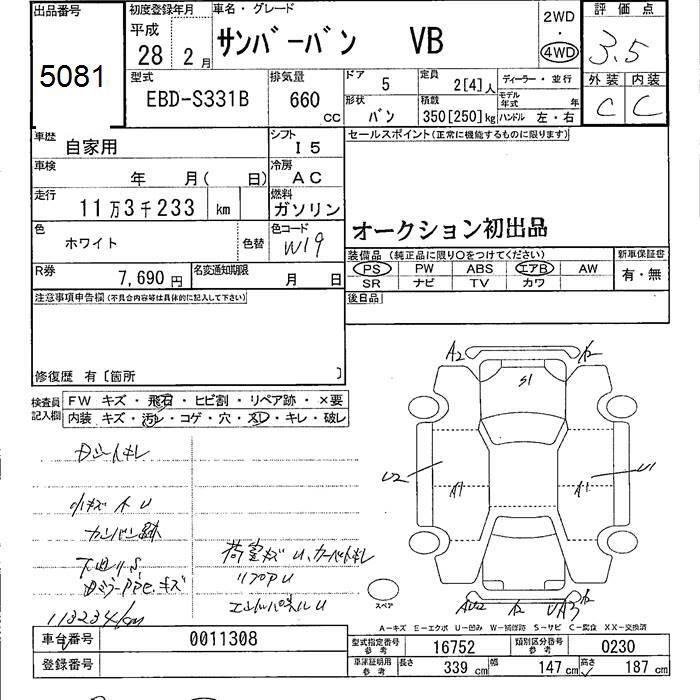 出品番号 初度登録年月 車名・グレード 評価点
5081 平成 28 2月 サンバーバン VB 2WD・4WD 3.5
型式 排気量 ドア 5 定員 2[4]人 ディーラー・並行 外装 内装
EBD-S331B 660 cc 形状 バン 積載 350[250]kg モデル年式 年 ハンドル 左・右 C C
車歴 自家用 シフト I5 セールスポイント(正常に機能するものに限ります)
車検 年 月( 日) 冷房 AC
走行 11万3千233 km 燃料 ガソリン オークション初出品
色 ホワイト 色替 色コード W19
装備品(純正品に限り○をつけてください) 新車保証書
PS PW ABS エアB AW 有・無
R券 7,690円 名変通知期限 月 日 SR ナビ TV カワ
注意事項申告欄(不具合内容等は具体的に記入して下さい) 後日品
修復歴 有〔箇所 〕
検査員記入欄 FW キズ・飛石・ヒビ割・リペア跡・×要
内装 キズ・汚レ・コゲ・穴・スレ・キレ・破レ
A2 S1
U2 A1 A1 U1
小キズ 小U
カンバン跡
下廻りS
荷室キズU、カーペットキレ
リアPPU
エンドパネルU
113234km
スペア
A-キズ E-エクボ U-凹み W-補修跡 S-サビ C-腐食 XX-交換済
車台番号 0011308 型式指定番号 参考 16752 類別区分番号 参考 0230
登録番号 車庫証明用 参考 長さ 339cm 幅 147cm 高さ 187cm